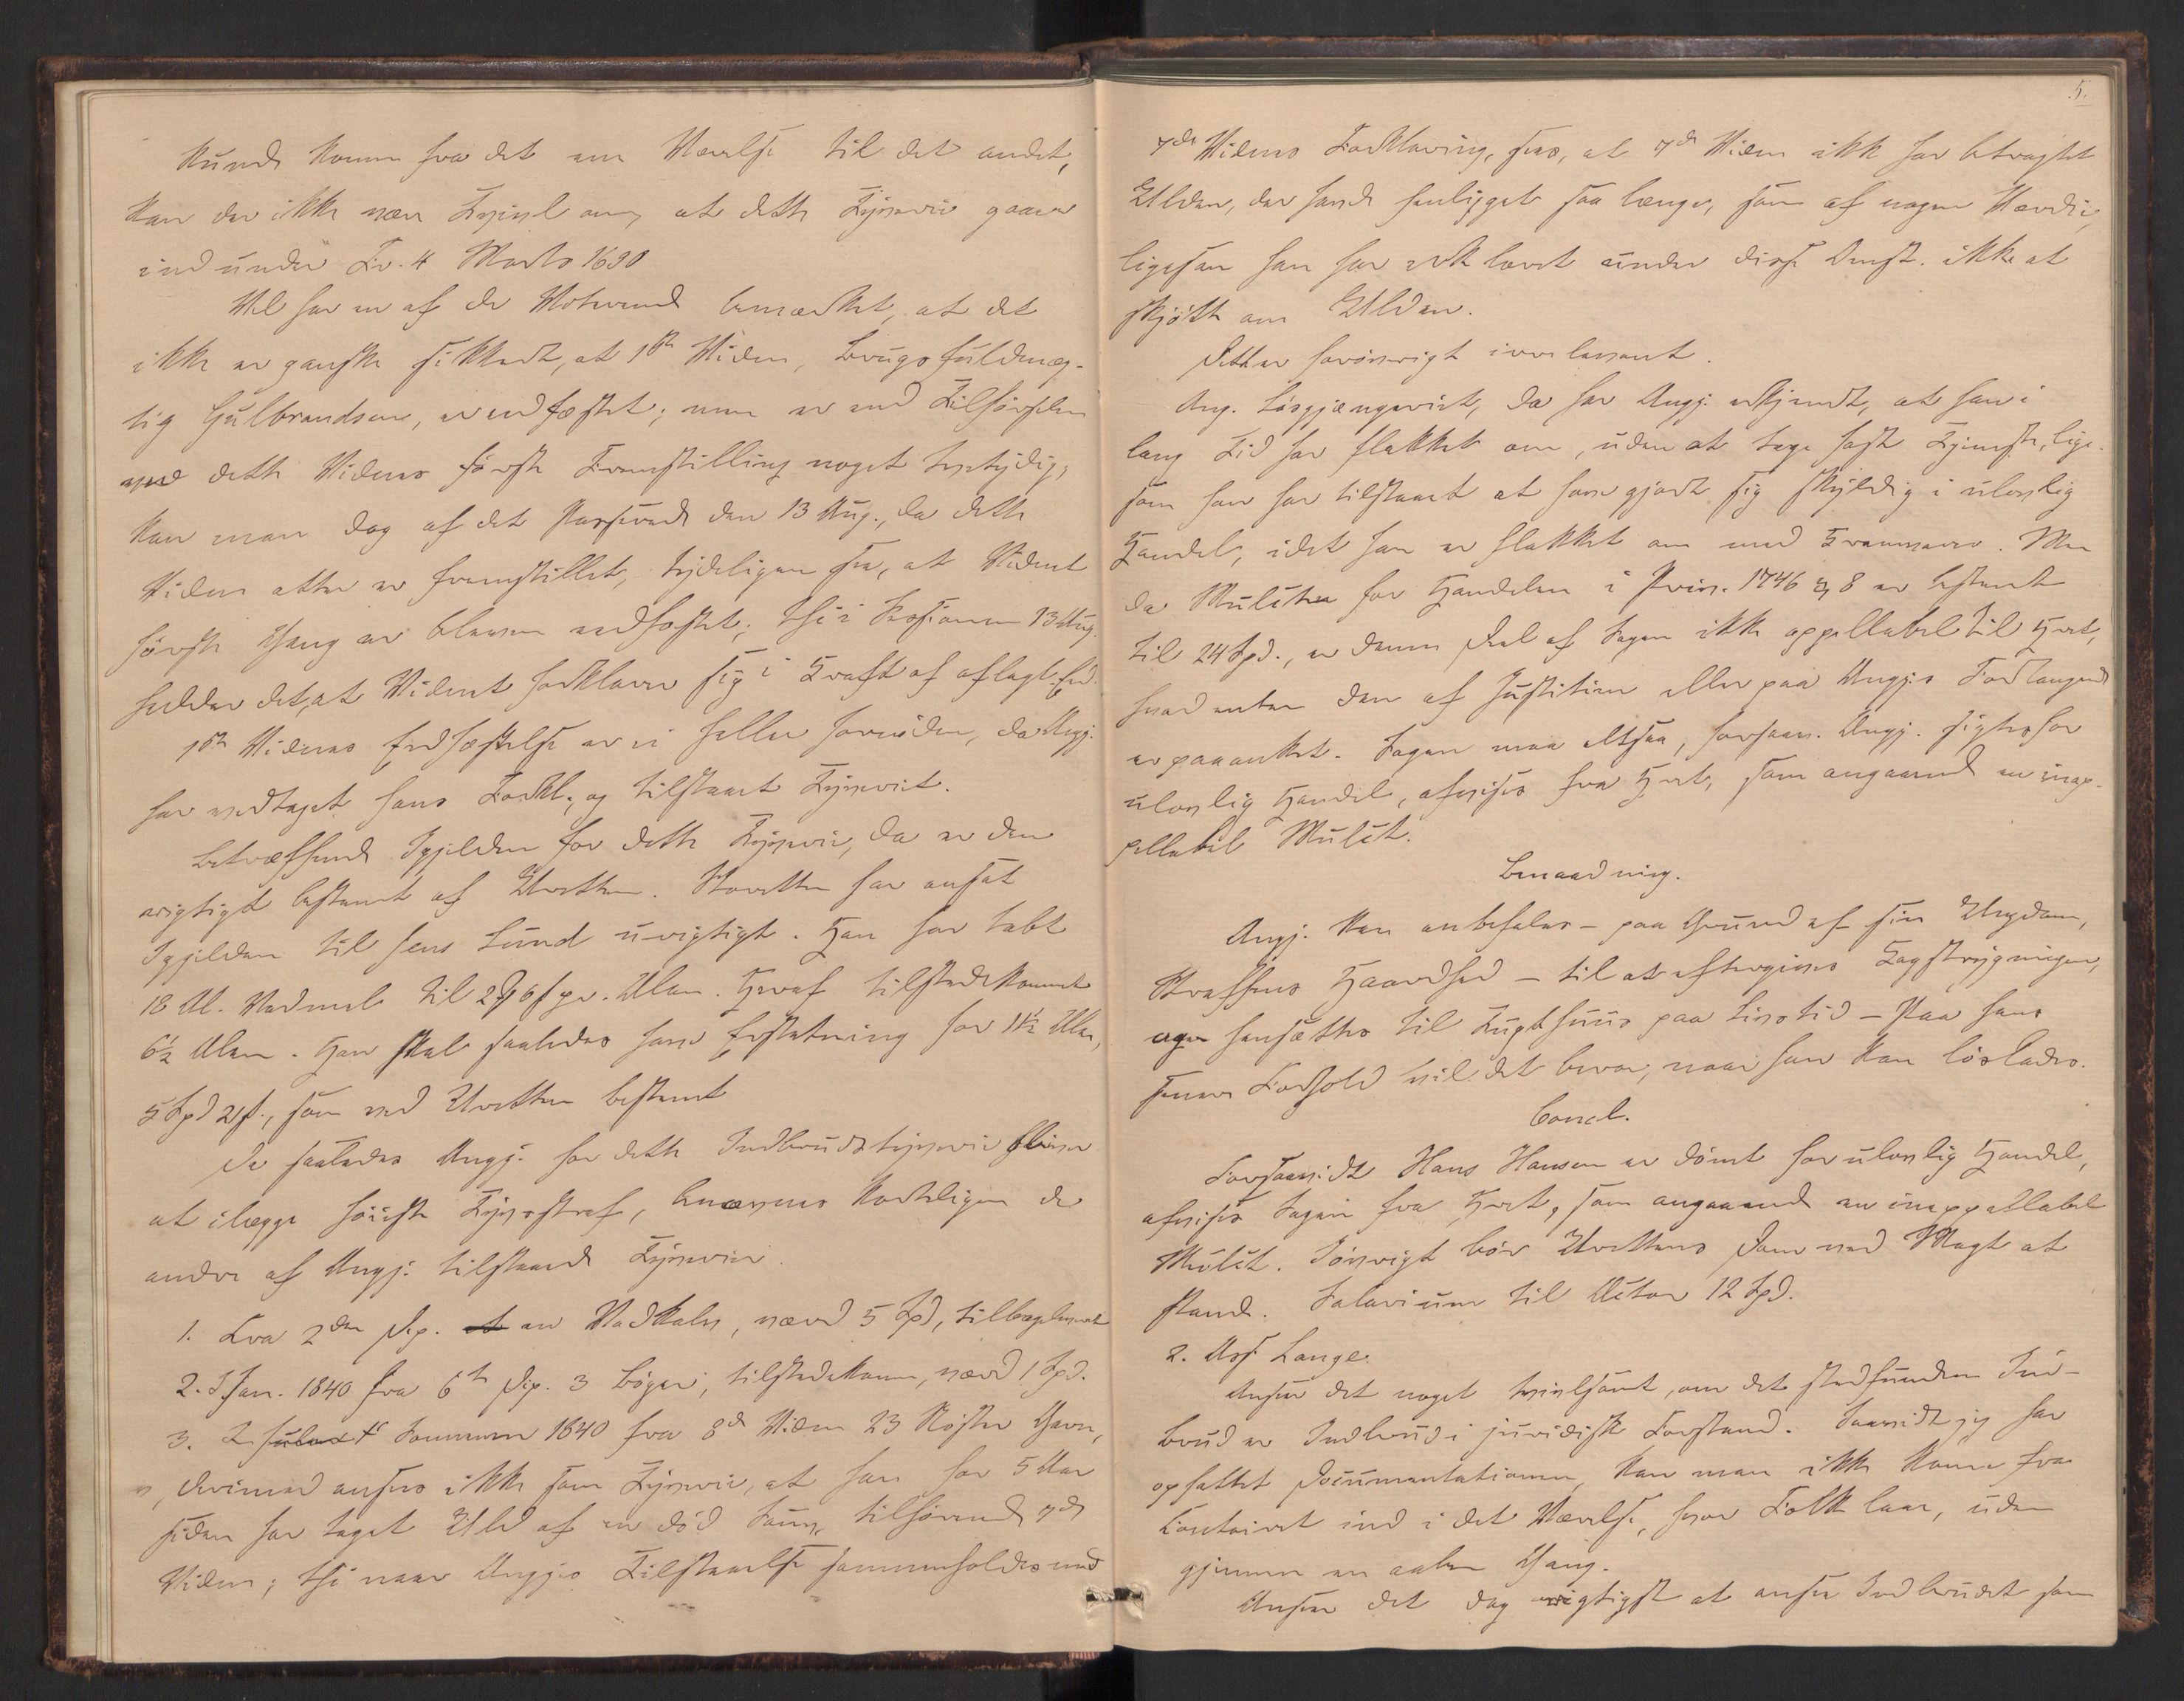 kunde komme fra det ene Værelse til det andet,
kan der ikke være Tvivl om, at dette Tyverie gaaer
ind under Fr. 4 Marts 1690
Vel har en af de Voterende bemærket, at det
ikke er ganske sikkert, at 1ste Vidne, Brugsfuldmæg-
tig Gulbrandsen, er edfæstet; men er end Tilførselen
ved dette Vidnes første Fremstilling noget tvetydig,
kan man dog af det Passerede den 13 Aug., da dette
Vidne atter er fremstillet, tydeligen see, at Vidnet
første Gang er bleven edfæstet; thi i Sessionen 13 Aug.
hedder det, at Vidnet forklarer sig i Kraft af aflagt Ed.
1ste Vidnes Edfæstelse er ei heller fornöden, da Angj.
har vedtaget hans Forkl. og tilstaaet Tyveriet.
Betræffende Igjelden for dette Tyverie, da er den
rigtigt bestemt af Uretten. Stiftsretten har ansat
Igjelden til Jens Lund urigtigt. Han har tabt
18 Al. Vadmel til 2 ort 6 s pr. Alen. Heraf tilstedekommet
6½ Alen. Han skal saaledes have Erstatning for 11½ Alen,
5 Spd 21 s., som ved Uretten bestemt
Da saaledes Angj. for dette Indbrudstyverie bliver
at ilægge höieste Tyvsstraf, benævnes korteligen de
andre af Angj. tilstaaede Tyverier.
1. Fra 2den Dep. en Vadkalv, værd 5 Spd, tilbageleveret
2. I Jan. 1840 fra 6te Dep. 3 Böger, tilstedekomne, værd 1 Spd.
3. Sommeren 1840 fra 8de Vidne 23 Nöster Garn,
Derimod ansees ikke som Tyverie, at han for 5 Aar
siden har taget Uld af en död Sau, tilhörende 7de
Vidne; thi naar Angjes Tilstaaelse sammenholdes med
5.
7de Vidnes Forklaring, sees, at 7de Vidne ikke har betragtet
Ulden, der havde henligget saa længe, som af nogen Værdie,
ligesom han har erklæret under disse Omst. ikke at
skjötte om Ulden.
Dette er forövrigt irrelevant.
Ang. Lösgjængeriet, da har Angj. erkjendt, at han i
lang Tid har flakket om, uden at tage fast Tjeneste, lige-
som han har tilstaaet at have gjort sig skyldig i ulovlig
Handel, idet han er flakket om med Kramvarer. Men
da Mulcten for Handelen i Priv. 1746 § 8 er bestemt
til 24 Spd., er denne Deel af Sagen ikke appellabel til Hret,
hvad enten den af Justitien eller paa Angjes Forlangende
er paaanket. Sagen maa altsaa, forsaav. Angj. sigtes for
ulovlig Handel, afvises fra Hret, som angaaende en inap-
pellabel Mulct.
Benaadning.
Angj. kan anbefales – paa Grund af sin Ungdom,
Straffens Haardhed – til at eftergives Kagstrygningen,
og hensættes til Tugthuus paa Livstid – Paa hans
senere Forhold vil det beroe, naar han kan löslades.
Concl.
Forsaavidt Hans Hansen er dömt for ulovlig Handel,
afvises Sagen fra Hret, som angaaende en inappellabel
Mulct. Iövrigt bör Urettens Dom ved Magt at
stande. Salarium til Actor 12 Spd.
2. Ass. Lange.
Anseer det noget tvivlsomt, om det stedfundne Ind-
brud er Indbrud i juridisk Forstand. Saavidt jeg har
opfattet Documentationen, kan man ikke komme fra
Contoiret ind i det Værelse, hvor Folk laae, uden
gjennem en aaben Gang.
Anseer det dog rigtigst at ansee Indbrudet som